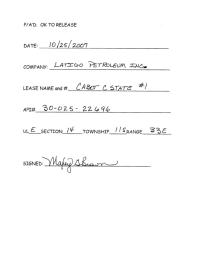 P/A'D. OK TO RELEASE
DATE: 10/25/2007
COMPANY: LATIGO PETROLEUM INC.
LEASE NAME and #: CABOT C STATE #1
API# 30-025-22696
UL E SECTION 14 TOWNSHIP 11S RANGE 33E
SIGNED